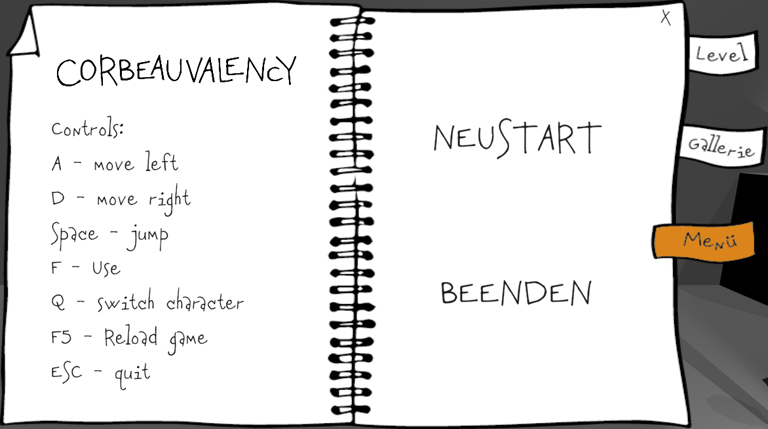 CORBEAUVALENCY
Controls:
A - move left
D - move right
Space - jump
F - Use
Q - switch character
F5 - Reload game
ESC - quit
X
NEUSTART
BEENDEN
Level
Gallerie
Menü